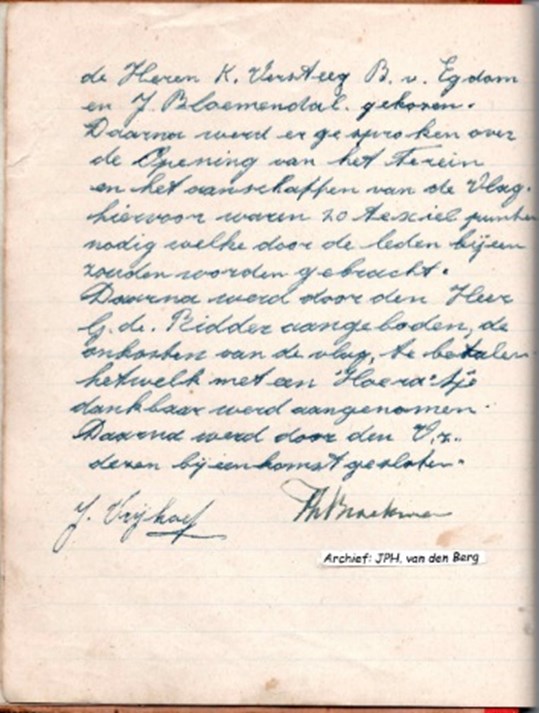 de Heren K. Versteeg B. v. Egdom
en J. Bloemendal. gekozen.
Daarna werd er gesproken over
de Opening van het Terein
en het aanschaffen van de Vlag.
hiervoor waren 20 textiel punten
nodig welke door de leden bijeen
zouden worden gebracht.
Daarna werd door den Heer
G. de. Ridder aangeboden, de
onkosten van de vlag, te betalen
hetwelk met een "Hoera"tje
dankbaar werd aangenomen.
Daarna werd door den V.z.
dezen bijeenkomst gesloten.
J. Vrijhoef
Archief: JPH. van den Berg